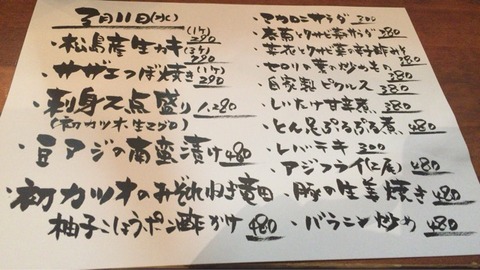 3月11日(水)
・松島産生カキ (1ケ) 290 (3ケ) 790
・サザエつぼ焼き (1ケ) 290
・刺身2点盛り 1,280
(初カツオ、生マグロ)
・豆アジの南蛮漬け 480
・初カツオのみぞれ和え 竜田
柚子こしょうポン酢かけ 480
・マカロニサラダ 300
・春菊とワサビ菜サラダ 380
・菜花とワサビ菜の辛子和え
・セロリの葉の炒めもの 380
・自家製ピクルス 380
・しいたけ甘辛煮 380
・とん足ぷるぷる煮 480
・レバテキ 300
・アジフライ(2尾) 480
・豚の生姜焼き 480
・バラニン炒め 480